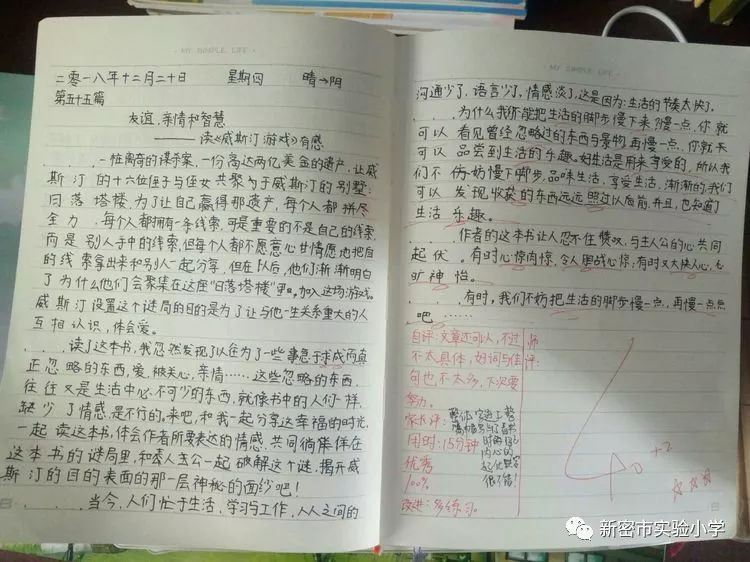 · MY SIMPLE LIFE ·
二零一八年十二月二十日 星期四 晴→阴
第五十五篇
友谊、亲情和智慧
——读《威斯汀游戏》有感
一桩离奇的谋杀案,一份高达两亿美金的遗产,让威
斯汀的十六位侄子与侄女共聚于威斯汀的别墅:
日落塔楼。为了让自己赢得那遗产,每个人都拼尽
全力,每个人都拥有一条线索,可是重要的不是自己的线索,
而是别人手中的线索,但每个人都不愿意心甘情愿地把自
的线索拿出来和别人一起分享,但在以后,他们渐渐明白
了为什么他们会聚集在这座“日落塔楼”里。加入这场游戏。
威斯汀设置这个谜局的目的是为了让与他一生关系重大的人
互相认识,体会爱。
读了这本书,我忽然发现了以往为了一些事急于求成而真
正忽略的东西,爱,被关心,亲情……这些忽略的东西,
往往又是生活中必不可少的东西,就像书中的人们一样,
缺少了情感,是不行的。来吧,和我一起分享这幸福的时光,
一起读这本书,体会作者所要表达的情感,共同徜徉在
这本书的谜局里,和主人公一起破解这个谜,揭开威
斯汀的目的表面的那一层神秘的面纱吧!
当今,人们忙于生活,学习与工作,人人之间的
MY SIMPLE LIFE
沟通少了,语言少了,情感淡了,这是因为:生活的节奏太快了。
为什么我们不能把生活的脚步慢下来?慢一点,你就
可以看见曾经忽略过的东西与景物,再慢一点,你就
可以品尝到生活的乐趣,生活是用来享受的,所以我
们不妨慢下脚步,品味生活,享受生活,渐渐的,我们
可以发现收获的东西远远照过以前,并且,也知道了
生活乐趣。
作者的这本书让人忍不住赞叹,与主人公的心共同
起伏。有时心惊肉惊,令人胆战心惊,有时又大快人心,心
旷神怡。
有时,我们不妨把生活的脚步慢一点,再慢一点
吧……
自评:文章还可以,不过
不太具体,好词与佳
句也不太多,下次要
努力。
家长评:
用时:15分钟
优秀
100%
改进:多练习。
师
评:
+2
新密市实验小学